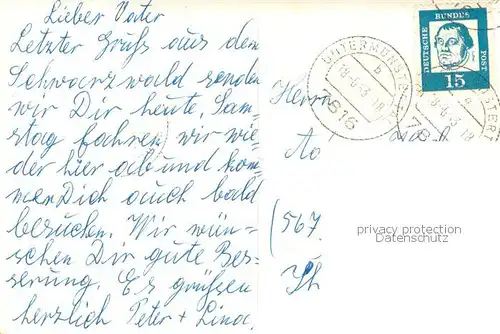 Lieber Vater
Letzter Gruß aus dem
Schwarzwald senden
wir Dir heute. Sam-
stag fahren wir wie-
der hier ab und kom-
men Dich auch bald
besuchen. Wir wün-
schen Dir gute Bes-
serung. Es grüßen
herzlich Peter + Lina.
UNTERMÜNSTERTAL
b
18-6-3 18
7816
DEUTSCHE BUNDESPOST
15
Herrn
(567
privacy protection
Datenschutz